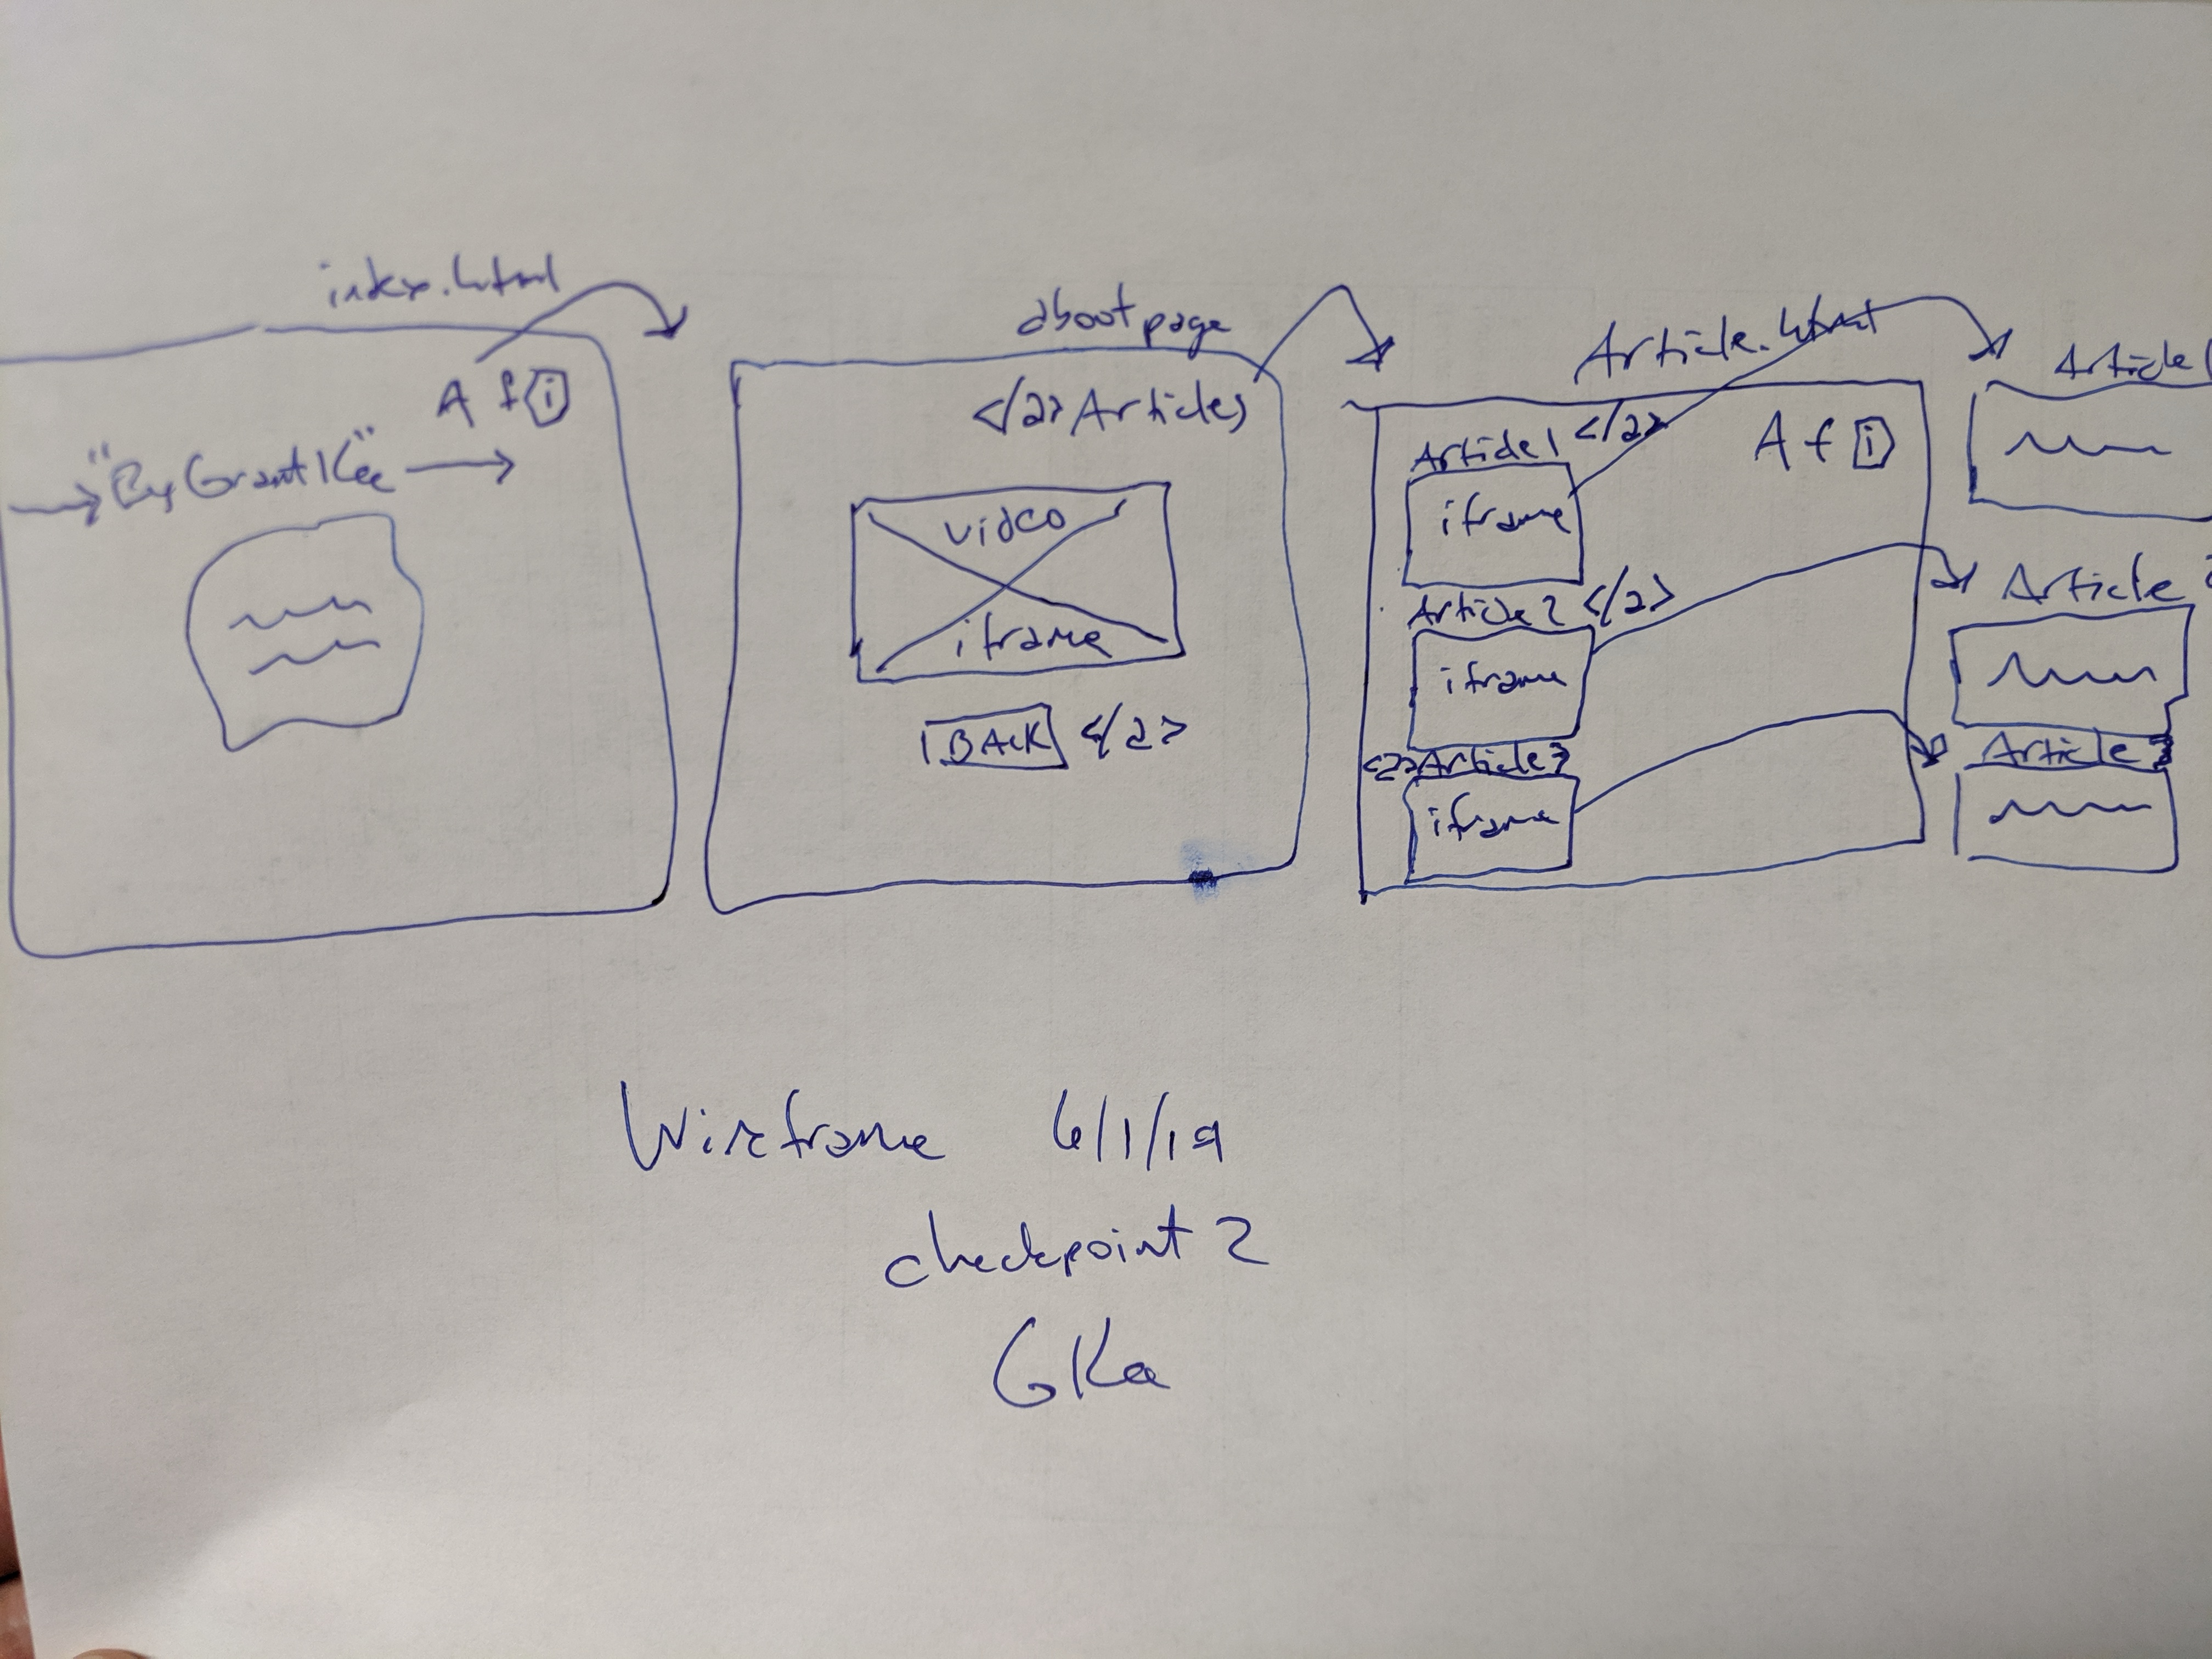 index.html
A f i
"By Grant Kee"
about page
</a> Articles
video
iframe
BACK </a>
Article.html
A f i
Article 1 </a>
iframe
Article 2 </a>
iframe
Article 3
iframe
Article 1
Article 2
Article 3
Wireframe 6/1/19
checkpoint 2